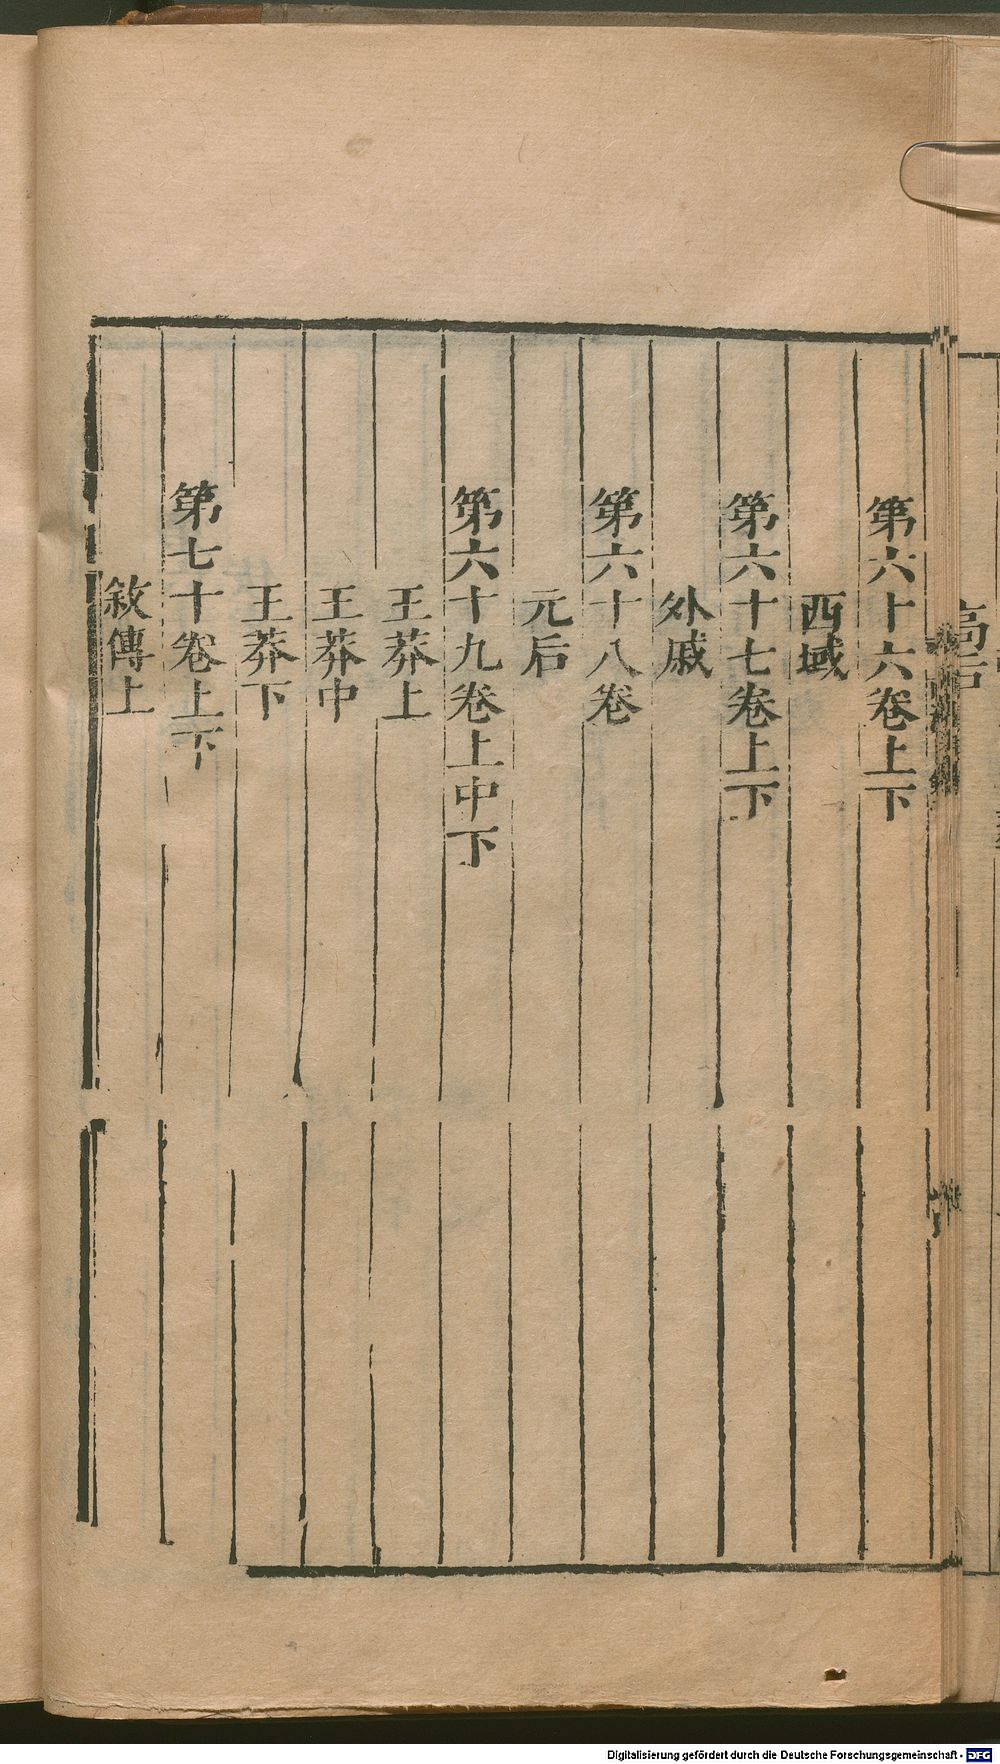 第六十六卷上下
西域
第六十七卷上下
外戚
第六十八卷
元后
第六十九卷上中下
王莽上
王莽中
王莽下
第七十卷上下
敘傳上
Digitalisierung gefördert durch die Deutsche Forschungsgemeinschaft - DFG